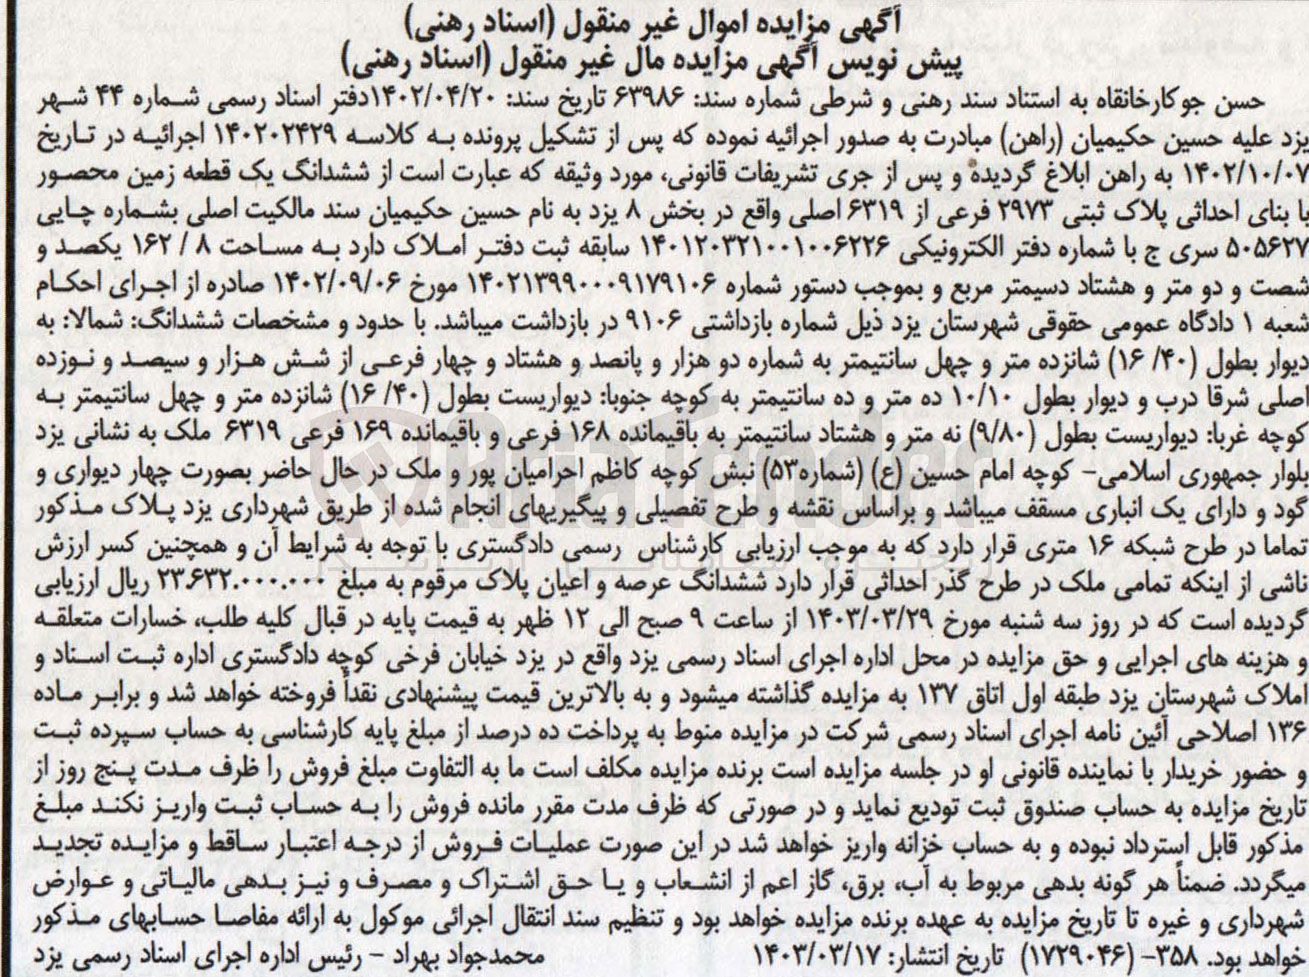 آگهی مزایده اموال غیر منقول (اسناد رهنی)
پیش نویس آگهی مزایده مال غیر منقول (اسناد رهنی)
حسن جوکارخانقاه به استناد سند رهنی و شرطی شماره سند: ۶۳۹۸۶ تاریخ سند: ۱۴۰۲/۰۴/۲۰دفتر اسناد رسمی شماره ۴۴ شهر
یزد علیه حسین حکیمیان (راهن) مبادرت به صدور اجرائیه نموده که پس از تشکیل پرونده به کلاسه ۱۴۰۲۰۲۴۲۹ اجرائیه در تاریخ
۱۴۰۲/۱۰/۰۷ به راهن ابلاغ گردیده و پس از جری تشریفات قانونی، مورد وثیقه که عبارت است از ششدانگ یک قطعه زمین محصور
با بنای احداثی پلاک ثبتی ۲۹۷۳ فرعی از ۶۳۱۹ اصلی واقع در بخش ۸ یزد به نام حسین حکیمیان سند مالکیت اصلی بشماره چاپی
۵۰۵۶۲۷ سری ج با شماره دفتر الکترونیکی ۱۴۰۱۲۰۳۲۱۰۰۱۰۰۶۲۲۶ سابقه ثبت دفتر املاک دارد به مساحت ۸ / ۱۶۲ یکصد و
شصت و دو متر و هشتاد دسیمتر مربع و بموجب دستور شماره ۱۴۰۲۱۳۹۹۰۰۰۹۱۷۹۱۰۶ مورخ ۱۴۰۲/۰۹/۰۶ صادره از اجرای احکام
شعبه ۱ دادگاه عمومی حقوقی شهرستان یزد ذیل شماره بازداشتی ۹۱۰۶ در بازداشت میباشد. با حدود و مشخصات ششدانگ: شمالا: به
دیوار بطول (۴۰/ ۱۶) شانزده متر و چهل سانتیمتر به شماره دو هزار و پانصد و هشتاد و چهار فرعی از شش هزار و سیصد و نوزده
اصلی شرقا درب و دیوار بطول ۱۰/۱۰ ده متر و ده سانتیمتر به کوچه جنوبا: دیواریست بطول (۴۰/ ۱۶) شانزده متر و چهل سانتیمتر به
کوچه غربا: دیواریست بطول (۹/۸۰) نه متر و هشتاد سانتیمتر به باقیمانده ۱۶۸ فرعی و باقیمانده ۱۶۹ فرعی ۶۳۱۹ ملک به نشانی یزد
بلوار جمهوری اسلامی- کوچه امام حسین (ع) (شماره۵۳) نبش کوچه کاظم احرامیان پور و ملک در حال حاضر بصورت چهار دیواری و
گود و دارای یک انباری مسقف میباشد و براساس نقشه و طرح تفصیلی و پیگیریهای انجام شده از طریق شهرداری یزد پلاک مذکور
تماما در طرح شبکه ۱۶ متری قرار دارد که به موجب ارزیابی کارشناس رسمی دادگستری با توجه به شرایط آن و همچنین کسر ارزش
ناشی از اینکه تمامی ملک در طرح گذر احداثی قرار دارد ششدانگ عرصه و اعیان پلاک مرقوم به مبلغ ۲۳.۶۳۲.۰۰۰.۰۰۰ ریال ارزیابی
گردیده است که در روز سه شنبه مورخ ۱۴۰۳/۰۳/۲۹ از ساعت ۹ صبح الی ۱۲ ظهر به قیمت پایه در قبال کلیه طلب، خسارات متعلقه
و هزینه های اجرایی و حق مزایده در محل اداره اجرای اسناد رسمی یزد واقع در یزد خیابان فرخی کوچه دادگستری اداره ثبت اسناد و
املاک شهرستان یزد طبقه اول اتاق ۱۳۷ به مزایده گذاشته میشود و به بالاترین قیمت پیشنهادی نقداً فروخته خواهد شد و برابر ماده
۱۳۶ اصلاحی آئین نامه اجرای اسناد رسمی شرکت در مزایده منوط به پرداخت ده درصد از مبلغ پایه کارشناسی به حساب سپرده ثبت
و حضور خریدار با نماینده قانونی او در جلسه مزایده است برنده مزایده مکلف است ما به التفاوت مبلغ فروش را ظرف مدت پنج روز از
تاریخ مزایده به حساب صندوق ثبت تودیع نماید و در صورتی که ظرف مدت مقرر مانده فروش را به حساب ثبت واریز نکند مبلغ
مذکور قابل استرداد نبوده و به حساب خزانه واریز خواهد شد در این صورت عملیات فروش از درجه اعتبار ساقط و مزایده تجدید
میگردد. ضمناً هر گونه بدهی مربوط به آب، برق، گاز اعم از انشعاب و یا حق اشتراک و مصرف و نیز بدهی مالیاتی و عوارض
شهرداری و غیره تا تاریخ مزایده به عهده برنده مزایده خواهد بود و تنظیم سند انتقال اجرائی موکول به ارائه مفاصا حسابهای مذکور
خواهد بود. ۳۵۸- (۱۷۲۹۰۴۶) تاریخ انتشار: ۱۴۰۳/۰۳/۱۷ محمدجواد بهراد - رئیس اداره اجرای اسناد رسمی یزد
AriaTender